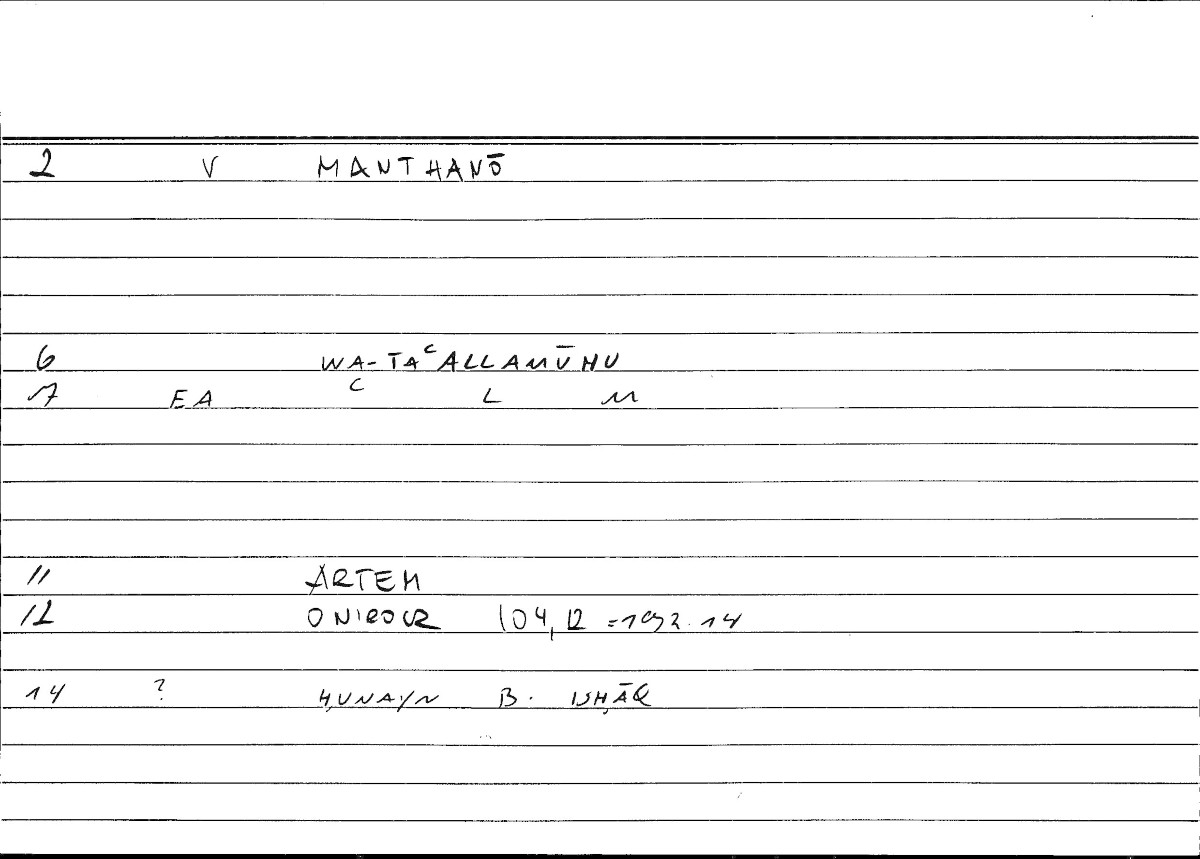 2 V MANTHANŌ
6 WA-TAʿALLAMŪHU
17 EA ʿ L M
11 ARTEM
12 ONIROCR 104,12 = 192.14
14 ? ḤUNAYN B. ISḤĀQ